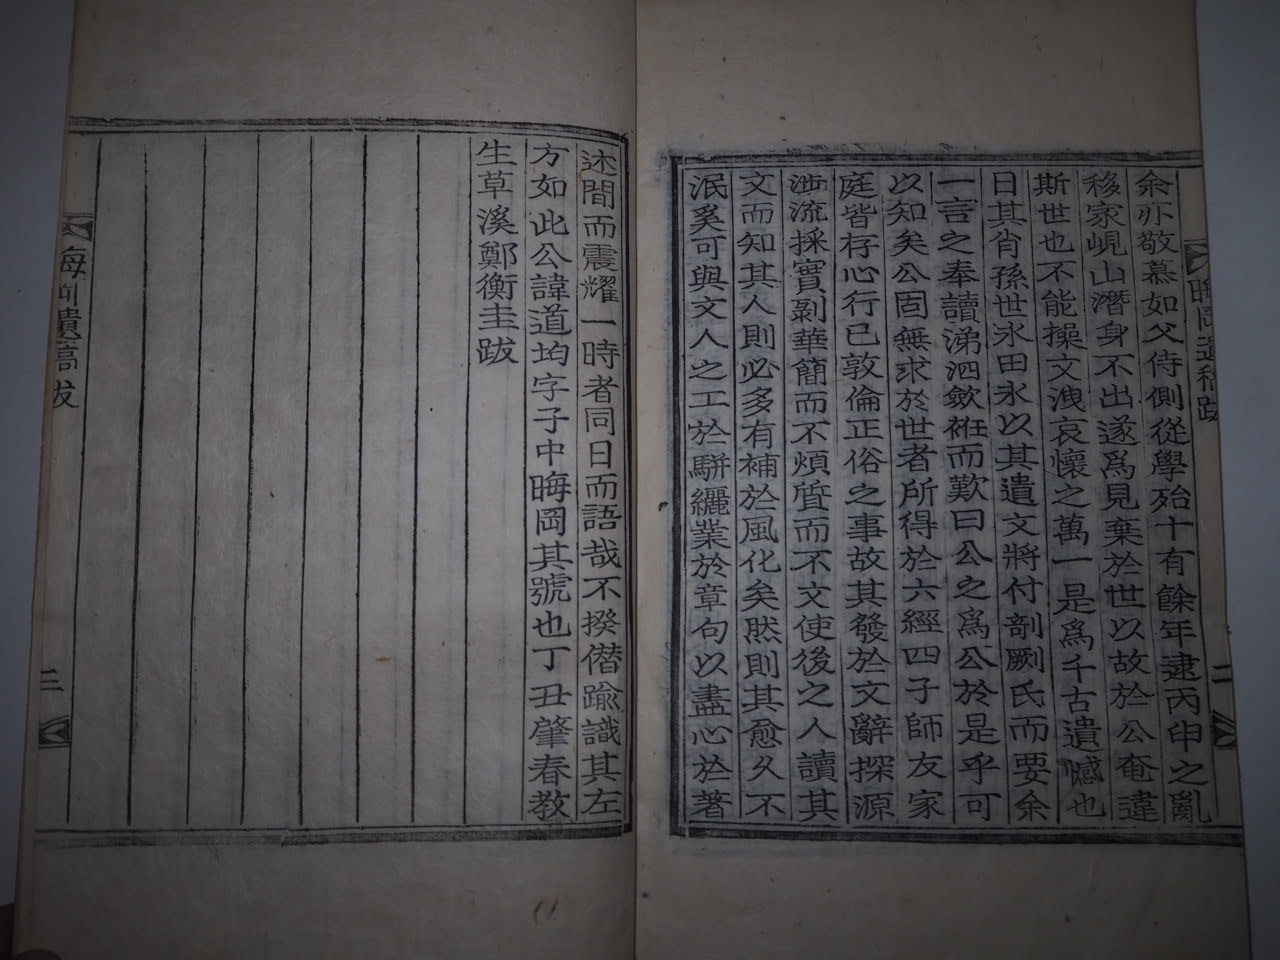 余亦敬慕如父侍側從學殆十有餘年逮丙申之亂
移家峴山潛身不出遂爲見棄於世以故於公奄違
斯世也不能操文洩哀懷之萬一是爲千古遺憾也
日其肖孫世永田永以其遺文將付剞劂氏而要余
一言之奉讀涕泗歛袵而歎曰公之爲公於是乎可
以知矣公固無求於世者所得於六經四子師友家
庭皆存心行已敦倫正俗之事故其發於文辭探源
泝流採實剝華簡而不煩質而不文使後之人讀其
文而知其人則必多有補於風化矣然則其愈久不
泯奚可與文人之工於騈儷業於章句以盡心於著
晦岡遺稿跋
二
述間而震耀一時者同日而語哉不揆僭踰識其左
方如此公諱道均字子中晦岡其號也丁丑肇春教
生草溪鄭衡圭跋
晦岡遺稿跋
三